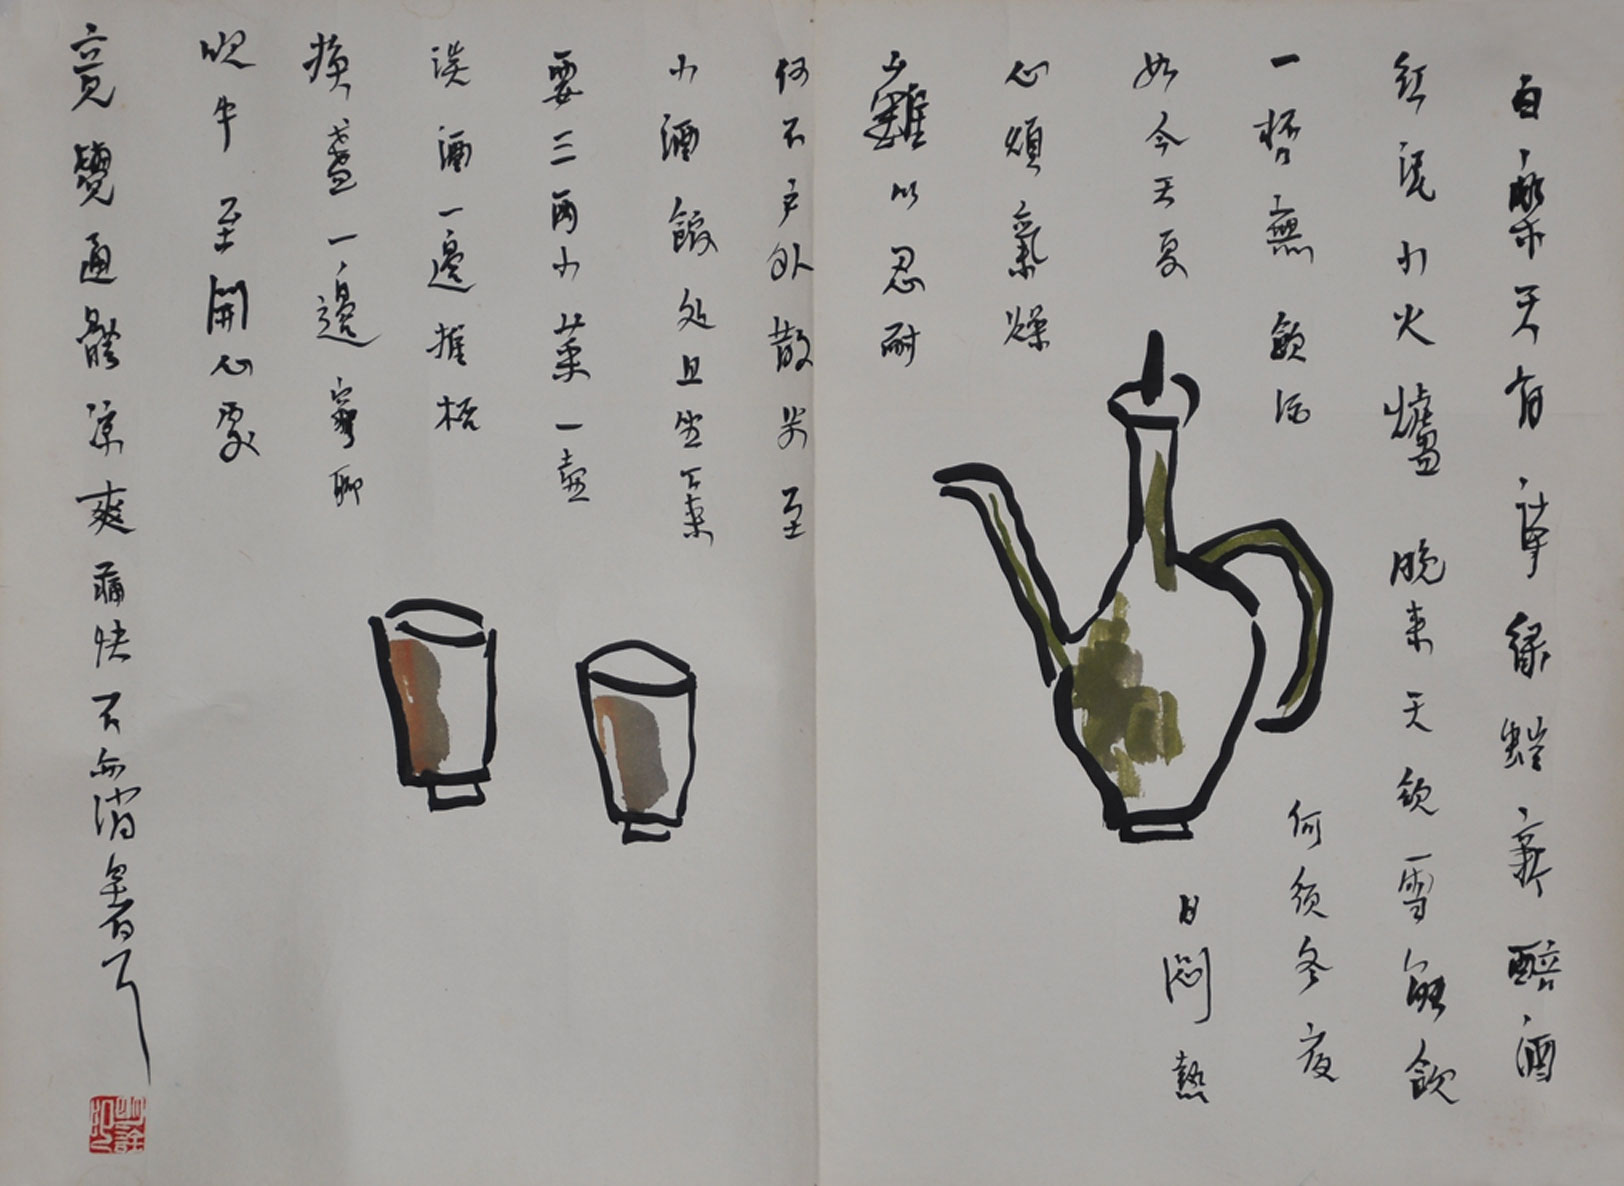 白樂天有詩綠螘新醅酒
紅泥小火爐晚來天欲雪能飲
一杯無飲酒何須冬夜
如今天夏日悶熱
心煩氣燥
難以忍耐
何不戶外散步至
小酒館处且坐下來
要三兩小菜一壺
淡酒一邊推杯
換盞一邊窮聊
吹牛至開心處
竟覺通體涼爽痛快不亦消暑乎